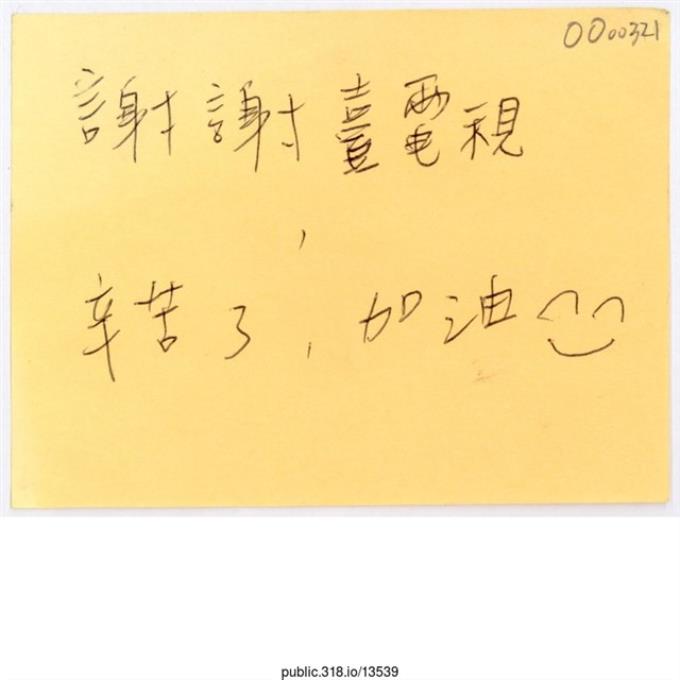 0000321
謝謝臺電視
,
辛苦了,加油
public.318.io/13539